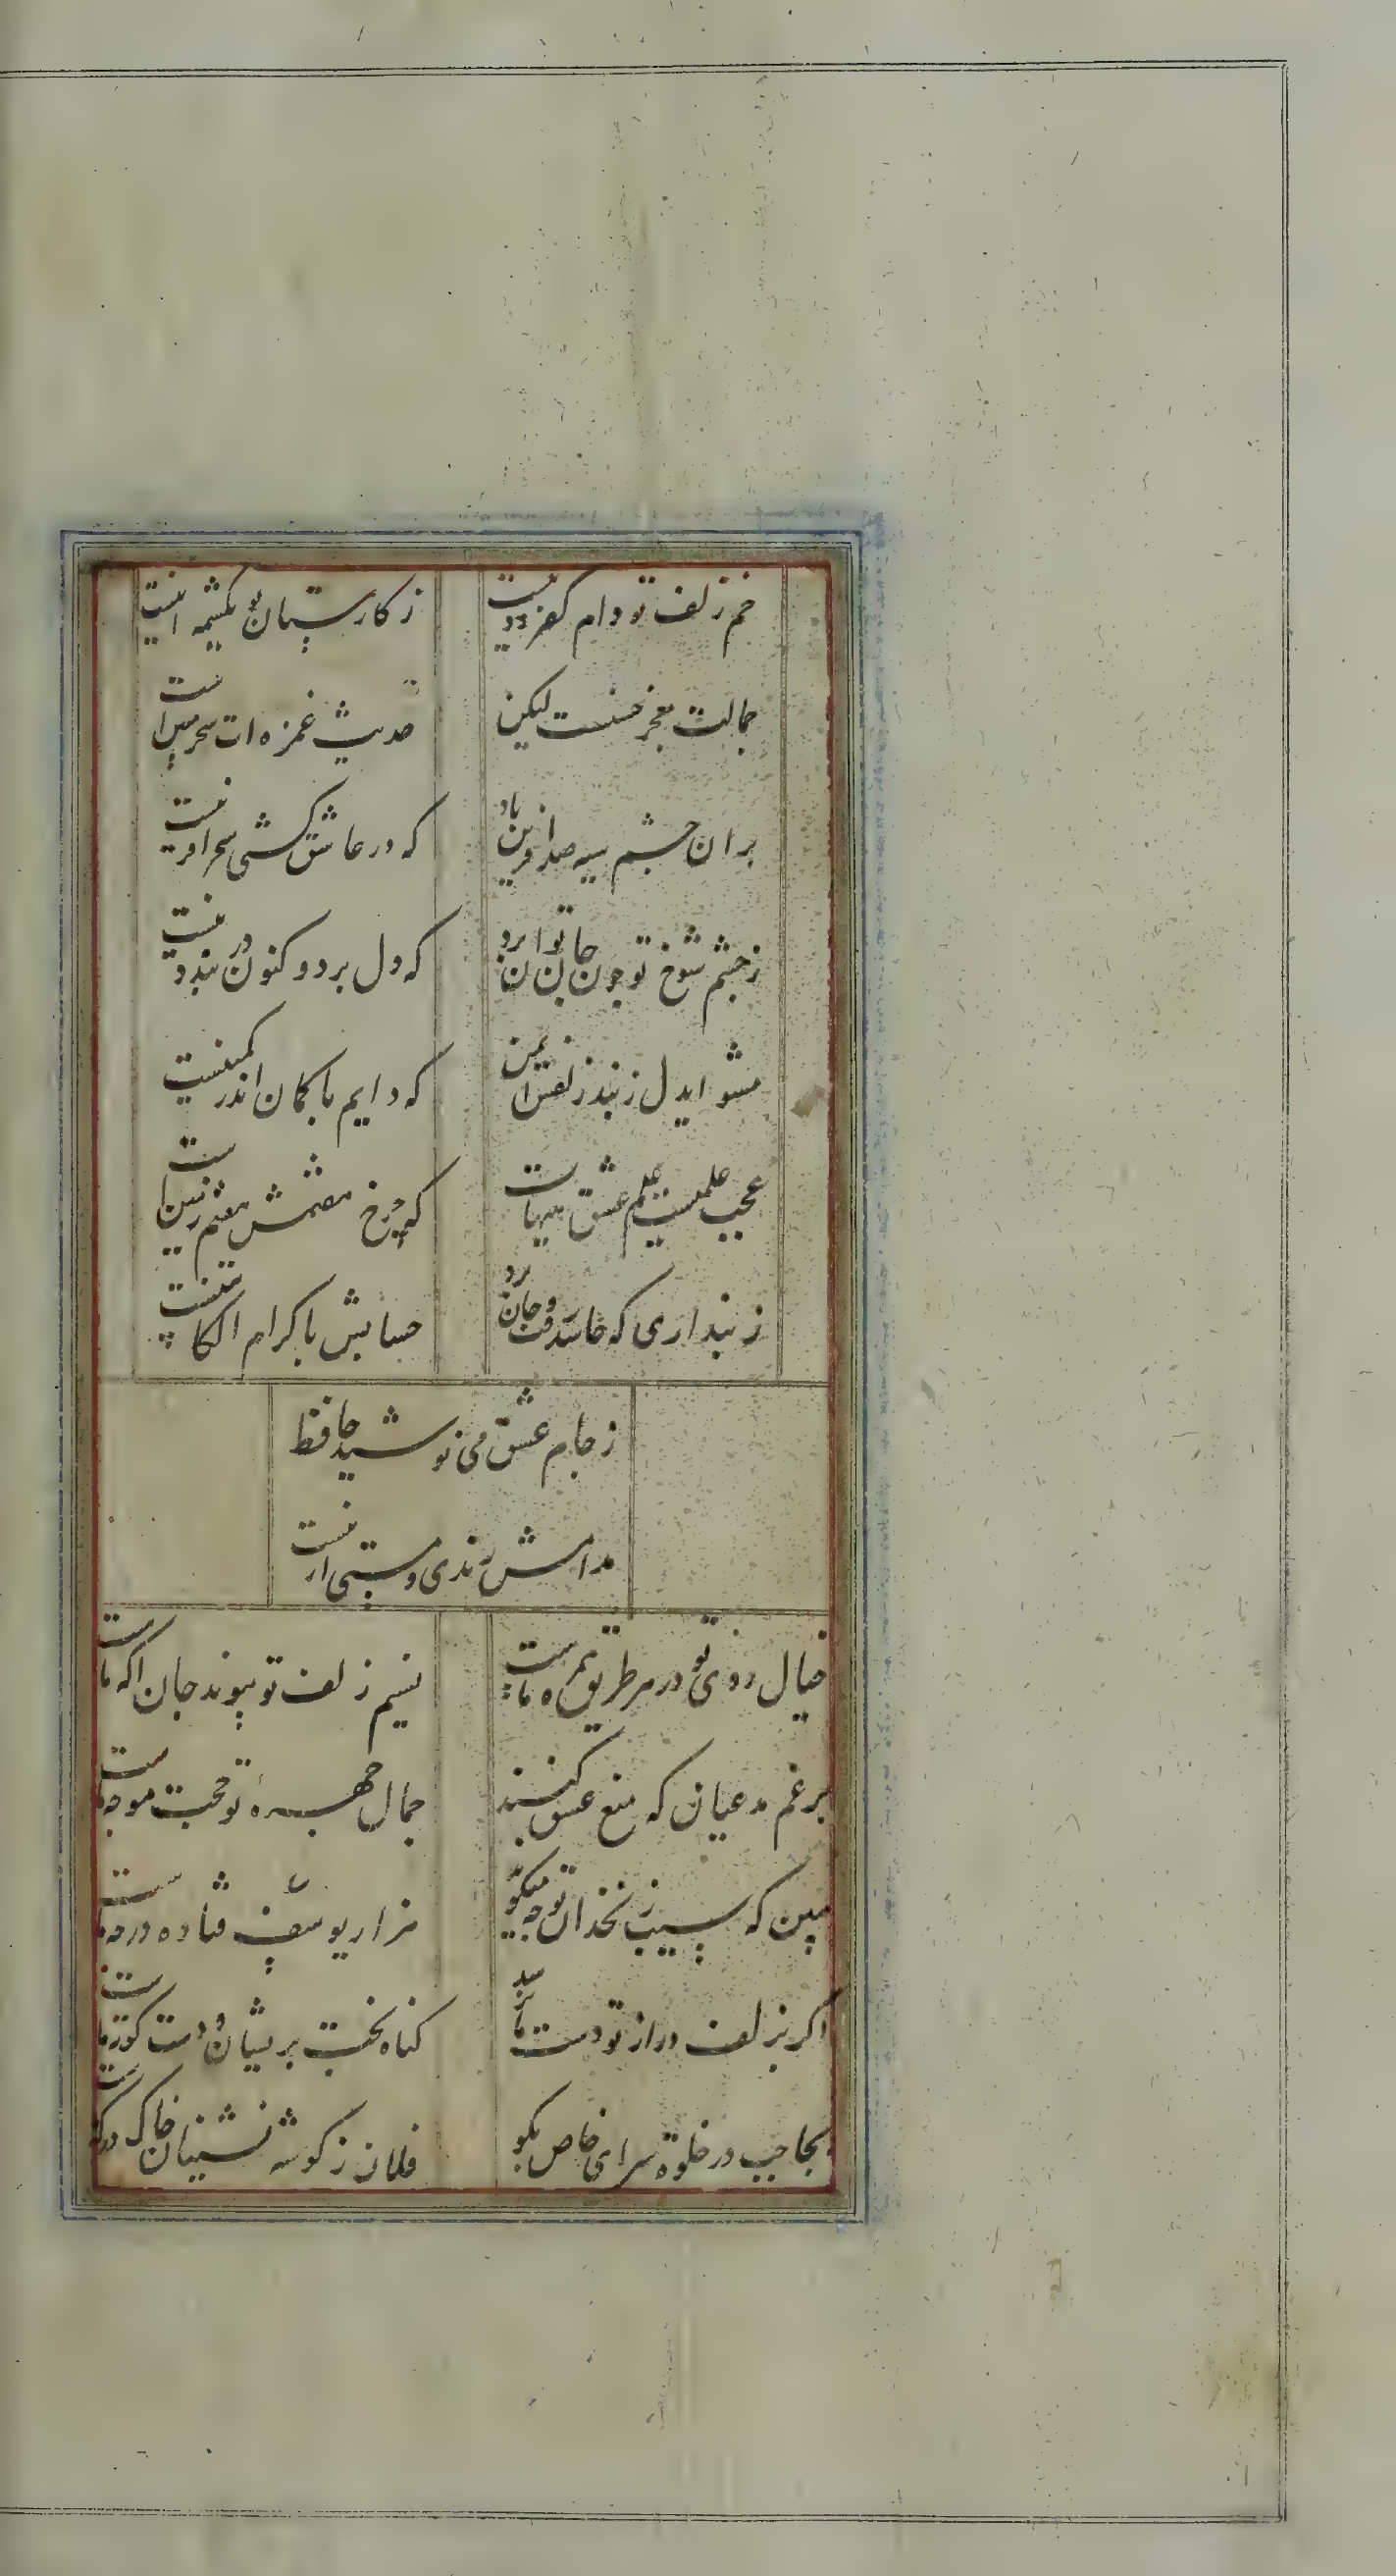 خم زلف تو دام کفر و دینست
ز کارستان تو یکشمه اینست
جمالت معجز حسنست لیکن
حدیث غمزه ات سحر مبین است
بران چشم سیه صد آفرین باد
که در عاشق کشی سحر آفرینست
ز چشم شوخ تو جان چون توان برد
که دل برد و کنون در بند دینست
مشو ایدل ز بند زلفش ایمن
که دایم با کمان اندر کمینست
عجب علمیست علم عشق هیهات
که چرخ هشتمش هفتم زمین است
تو پنداری که حاسد رفت و جان برد
حسابش با کرام الکاتبینست
ز جام عشق می نوشید حافظ
مدامش رندی و مستی ازینست
خیال روی تو در هر طریق همره ماست
نسیم زلف تو پیوند جان آکه ماست
برغم مدعیان که منع عشق کنند
جمال چهره تو حجت موجه ماست
ببین که سیب زنخدان تو چه میکوید
هزار یوسف فتاده در چه ماست
اکر بزلف دراز تو دست ما نرسد
کناه بخت پریشان و دست کوته ماست
بحاجب در خلوة سرای خاص بکو
فلان ز کوشه نشینان خاک درکه ماست